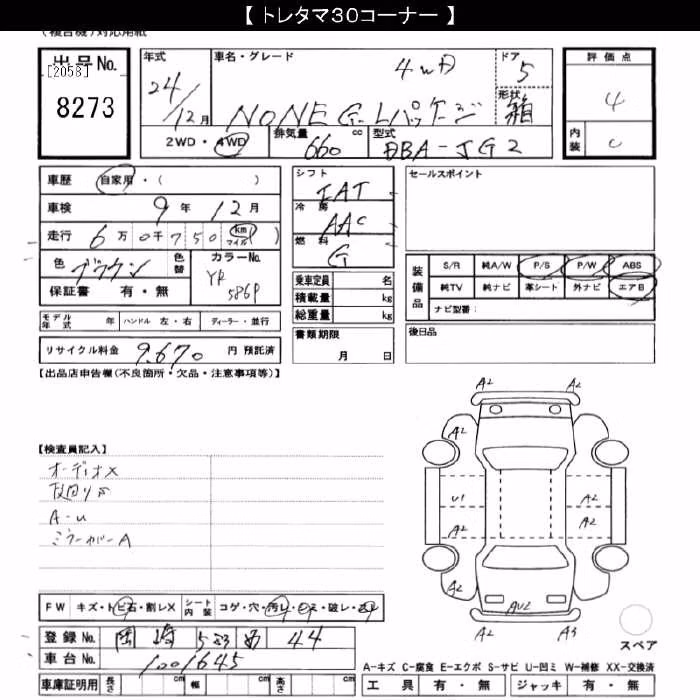 【 トレタマ３０コーナー 】
(複合機)対応用紙
出品No.
[2058]
8273
年式
24/12月
車名・グレード
4WD
N ONE G Lパッケージ
ドア
5
形状
箱
評価点
4
内装
C
2WD・4WD
排気量
660 cc
型式
DBA-JG2
車歴 自家用・( )
車検 9年 12月
走行 6万0千750 (km マイル)
色 ブラウン 色替 カラーNo.
YR586P
保証書 有・無
モデル年式 年 ハンドル 左・右 ディーラー・並行
リサイクル料金 9,670 円 預託済
シフト
IAT
冷房
AAC
燃料
G
乗車定員 名
積載量 kg
総重量 kg
書類期限
月 日
セールスポイント
装備品 S/R 純A/W P/S P/W ABS
純TV 純ナビ 革シート 外ナビ エアB
ナビ型番:
後日品
【出品店申告欄(不良箇所・欠品・注意事項等)】
【検査員記入】
オーディオX
A-U
ミラーカバーA
A2 A2
A2 A2
U1 A2
A2 A2
A2 A2
AU2
A2 A3
スペア
FW キズ・トビ石・割レX シート内装 コゲ・穴・汚レ・
登録No. 岡崎 533 め 44
車台No. 1001645
車庫証明用 長さ cm 幅 cm 高さ cm
A-キズ C-腐食 E-エクボ S-サビ U-凹ミ W-補修 XX-交換済
工具 有・無 ジャッキ 有・無